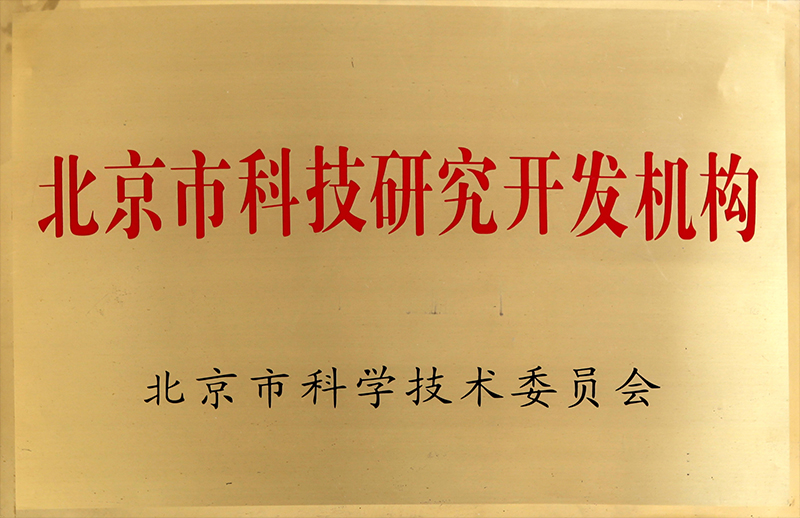 北京市科技研究开发机构
北京市科学技术委员会